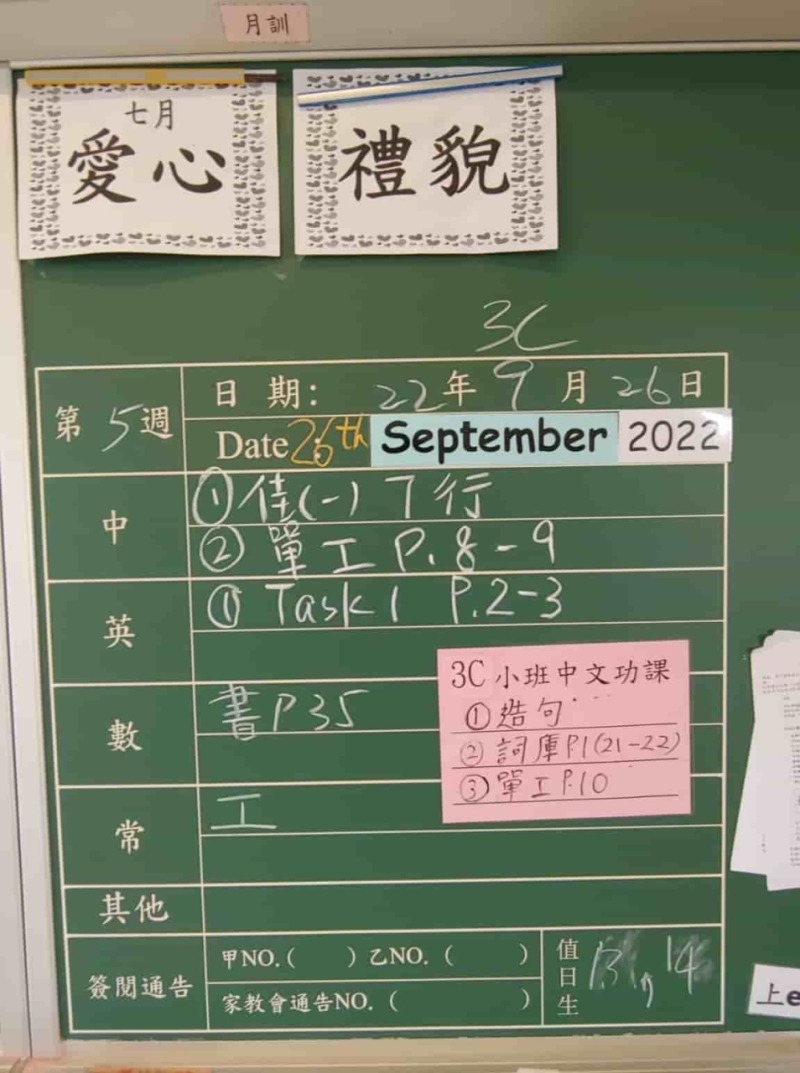 月訓
七月
愛心
禮貌
3C
第5週
日期：22年9月26日
Date：26th September 2022
中
①佳(一)7行
②單工P.8-9
英
① Task 1 P.2-3
數
書P35
3C小班中文功課
①造句
②詞庫P.1(21-22)
③單工P.10
常
工
其他
簽閱通告
甲NO.( ) 乙NO.( )
家教會通告NO.( )
值日生
13, 14
上e